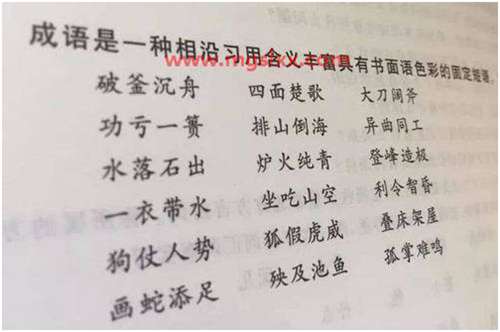 成语是一种相沿习用含义丰富具有书面语色彩的固定短语。
破釜沉舟 四面楚歌 大刀阔斧
功亏一篑 排山倒海 异曲同工
水落石出 炉火纯青 登峰造极
一衣带水 坐吃山空 利令智昏
狗仗人势 狐假虎威 叠床架屋
画蛇添足 殃及池鱼 孤掌难鸣